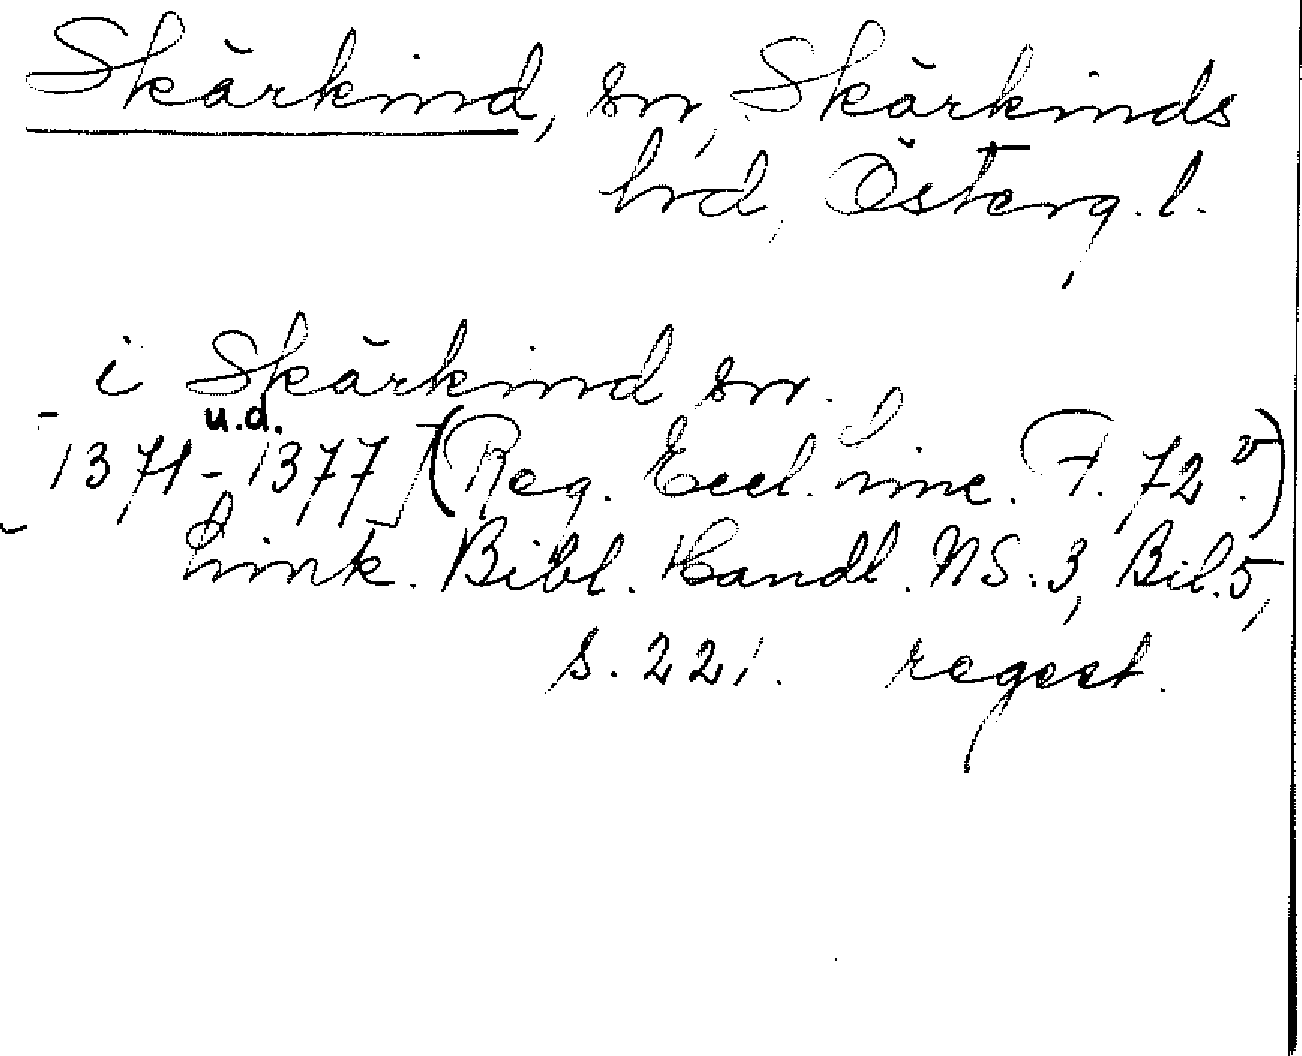 Skärkind, sn, Skärkinds
hd, Österg. l.
i Skärkind sn.
u.d.
1371-1377] (Reg. Eccl. Linc. F. 72 v.)
Link. Bibl. Handl. NS:3, Bil.5,
s. 221. regest.